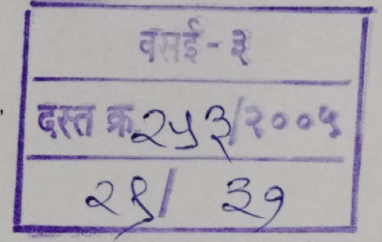 वसई - ३
दस्त क्र २५३/२००५
२९/ ३१